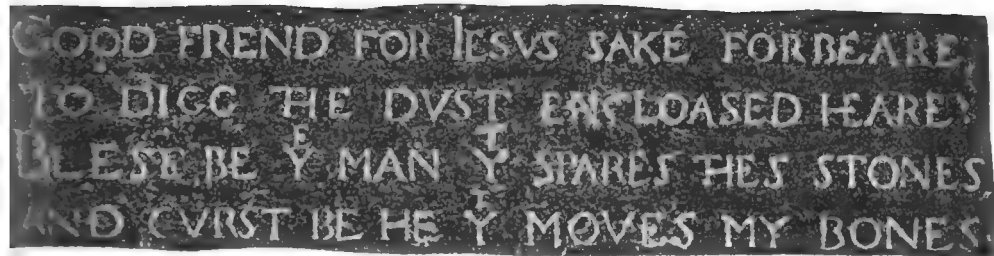 GOOD FREND FOR IESVS SAKE FORBEARE,
TO DIGG THE DVST ENCLOASED HEARE:
BLESTE BE Yᴱ MAN Yᵀ SPARES THES STONES
AND CVRST BE HE Yᵀ MOVES MY BONES.